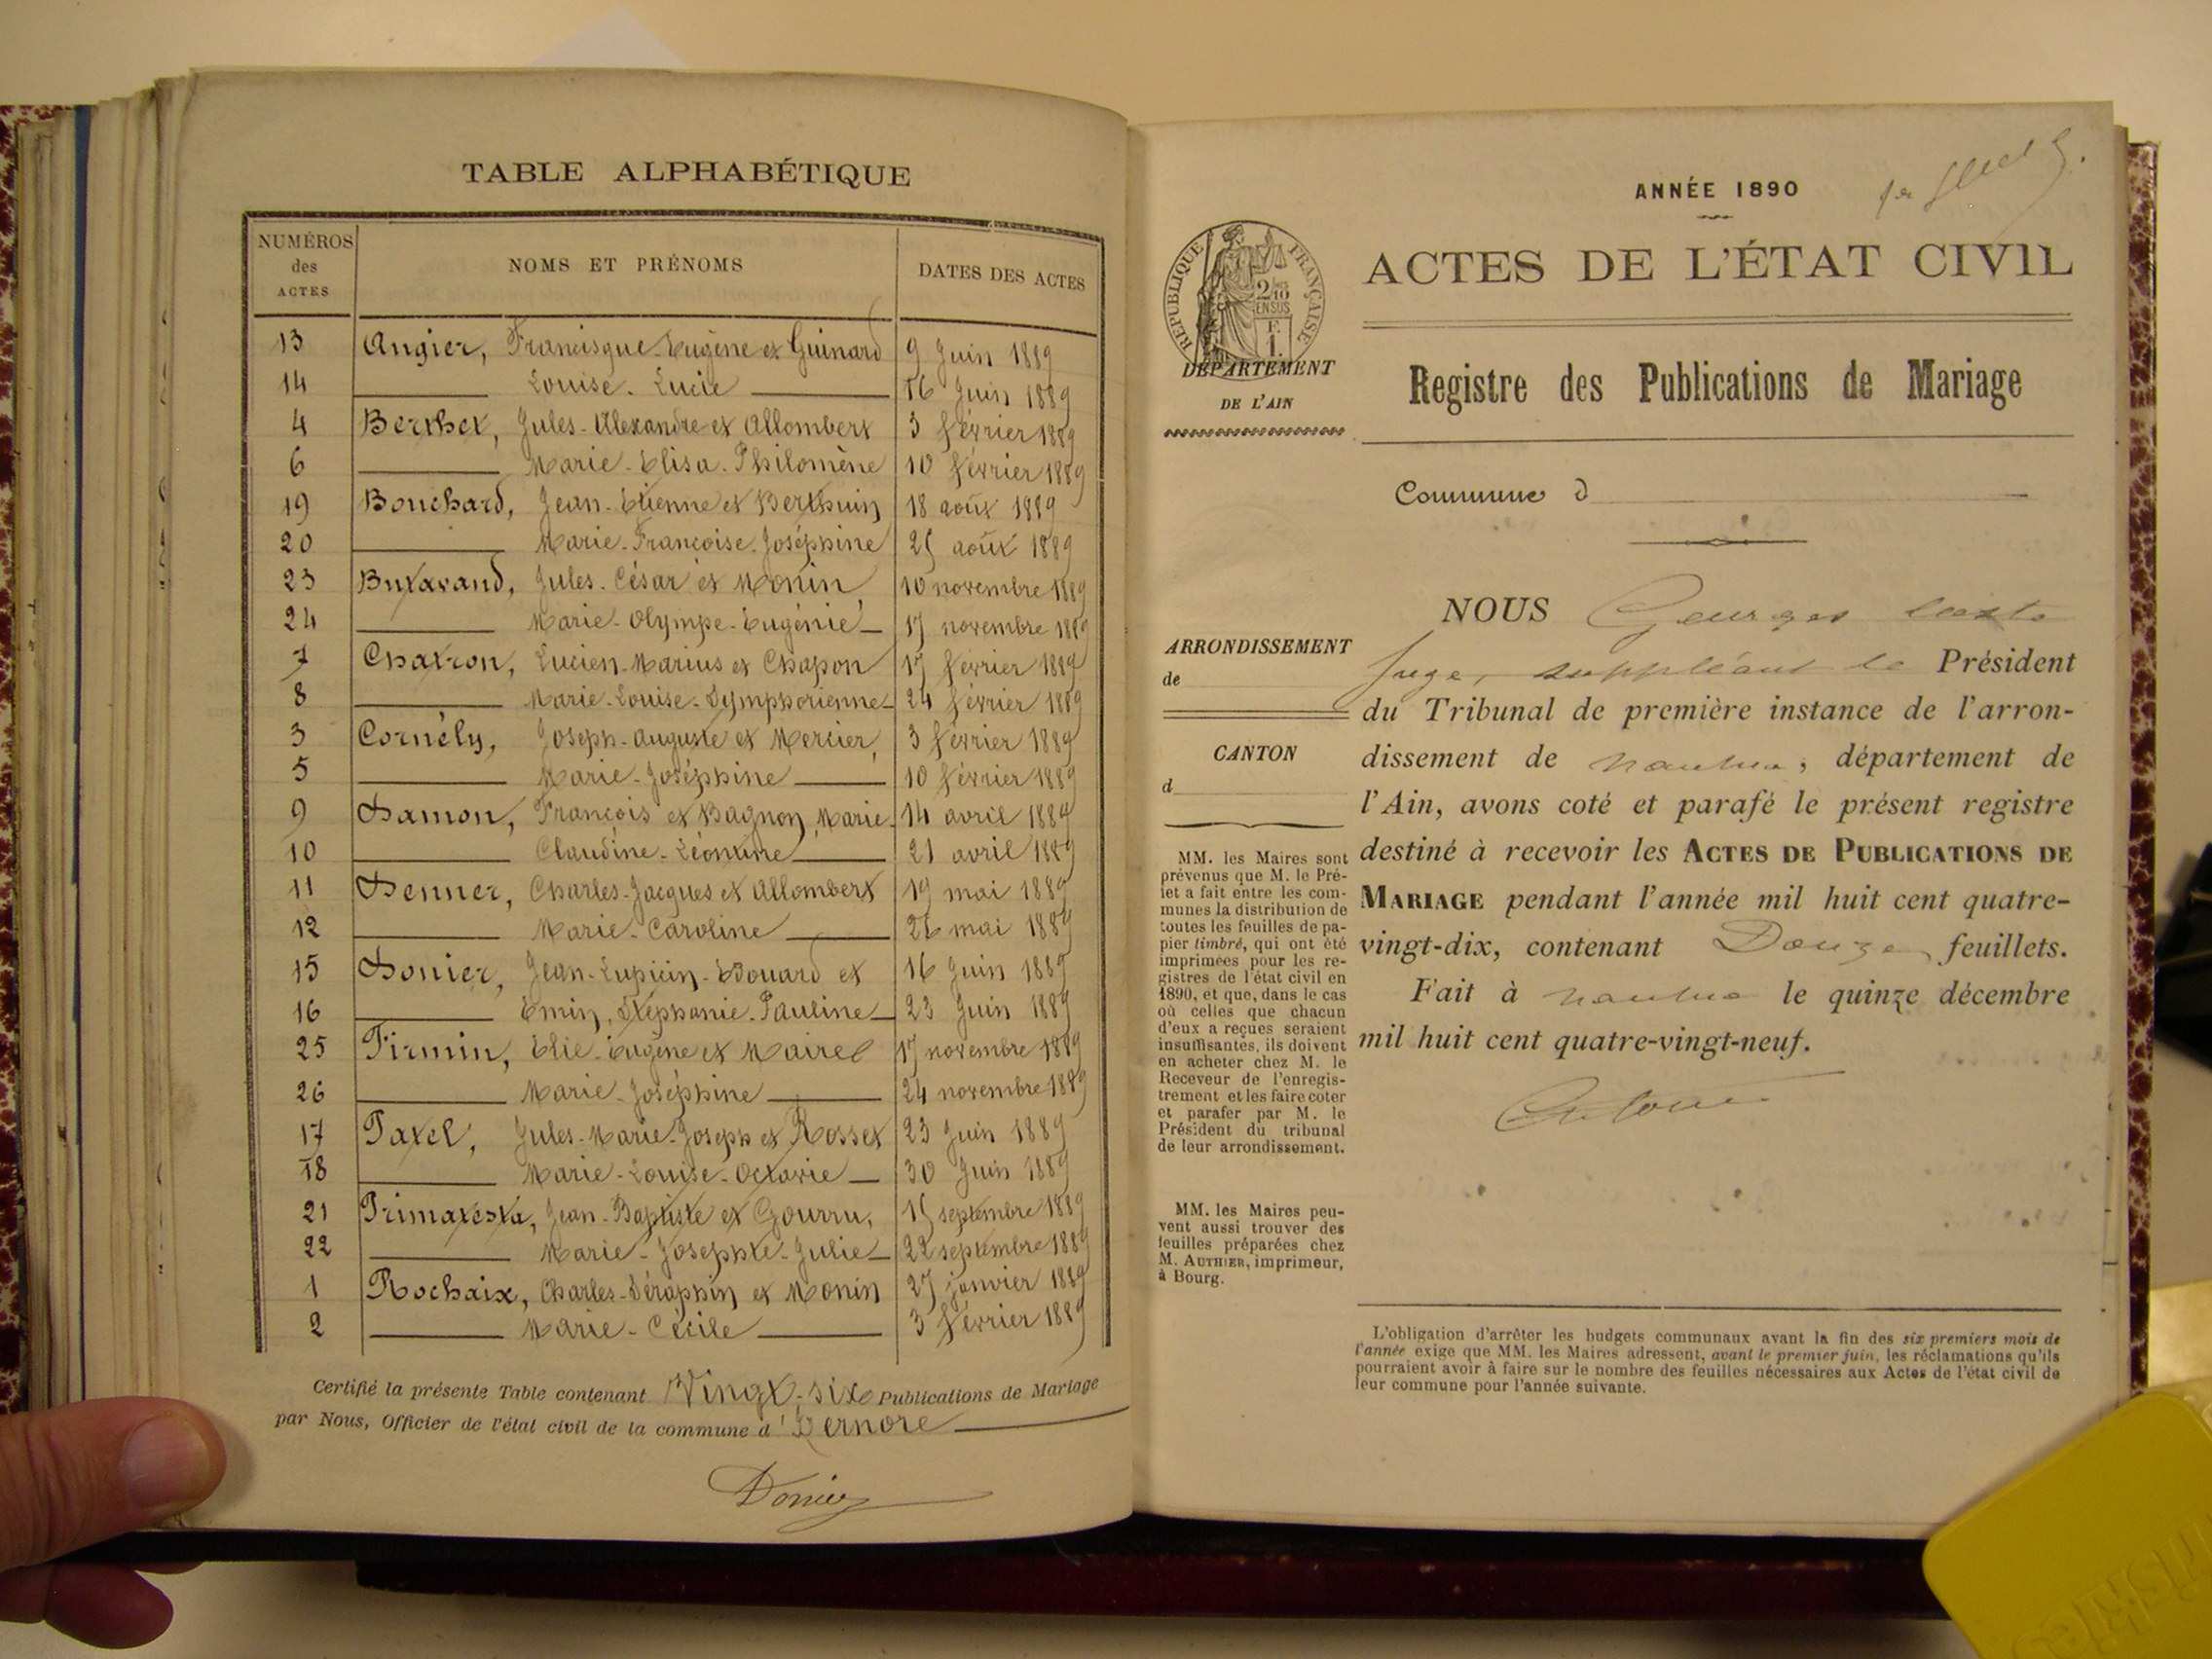 TABLE ALPHABÉTIQUE
NUMÉROS des ACTES NOMS ET PRÉNOMS DATES DES ACTES
13 Angier, Francisque-Eugène et Guinard 9 Juin 1889
14 Louise-Lucie 16 Juin 1889
4 Berthet, Jules-Alexandre et Allombert 3 février 1889
6 Marie-Elisa-Philomène 10 février 1889
19 Bouchard, Jean-Etienne et Berthuin 18 août 1889
20 Marie-Françoise-Joséphine 25 août 1889
23 Butavand, Jules-César et Monin, 10 novembre 1889
24 Marie-Olympe-Eugénie 17 novembre 1889
7 Chatron, Lucien-Marius et Chapon 17 février 1889
8 Marie-Louise-Symphorienne 24 février 1889
3 Cornély, Joseph-Auguste et Mercier, 3 février 1889
5 Marie-Joséphine 10 février 1889
9 Damon, François et Bagnon, Marie- 14 avril 1889
10 Claudine-Léontine 21 avril 1889
11 Denner, Charles-Jacques et Allombert 19 mai 1889
12 Marie-Caroline 26 mai 1889
15 Donier, Jean-Lupicin-Edouard et 16 Juin 1889
16 Emin, Stéphanie-Pauline 23 Juin 1889
25 Firmin, Elie-Eugène et Mairel 17 novembre 1889
26 Marie-Joséphine 24 novembre 1889
17 Patel, Jules-Marie-Joseph et Rosset 23 Juin 1889
18 Marie-Louise-Octavie 30 Juin 1889
21 Primatesta, Jean-Baptiste et Gourru, 15 septembre 1889
22 Marie-Josephte-Julie 22 septembre 1889
1 Rochaix, Charles-Séraphin et Monin 27 janvier 1889
2 Marie-Cécile 3 février 1889
Certifié la présente Table contenant Vingt-six Publications de Mariage
par Nous, Officier de l'état civil de la commune d'Izernore
Donier
ANNÉE 1890
REPUBLIQUE FRANÇAISE
2/10 EN SUS
F. 1.
ACTES DE L'ÉTAT CIVIL
DÉPARTEMENT
DE L'AIN
Registre des Publications de Mariage
Commune d
ARRONDISSEMENT
de
CANTON
d
MM. les Maires sont
prévenus que M. le Pré-
fet a fait entre les com-
munes la distribution de
toutes les feuilles de pa-
pier timbré, qui ont été
imprimées pour les re-
gistres de l'état civil en
1890, et que, dans le cas
où celles que chacun
d'eux a reçues seraient
insuffisantes, ils doivent
en acheter chez M. le
Receveur de l'enregis-
trement et les faire coter
et parafer par M. le
Président du tribunal
de leur arrondissement.
MM. les Maires peu-
vent aussi trouver des
feuilles préparées chez
M. AUTHIER, imprimeur,
à Bourg.
NOUS Georges
Juge, suppléant le Président
du Tribunal de première instance de l'arron-
dissement de Nantua, département de
l'Ain, avons coté et parafé le présent registre
destiné à recevoir les ACTES DE PUBLICATIONS DE
MARIAGE pendant l'année mil huit cent quatre-
vingt-dix, contenant Douze feuillets.
Fait à Nantua le quinze décembre
mil huit cent quatre-vingt-neuf.
L'obligation d'arrêter les budgets communaux avant la fin des six premiers mois de
l'année exige que MM. les Maires adressent, avant le premier juin, les réclamations qu'ils
pourraient avoir à faire sur le nombre des feuilles nécessaires aux Actes de l'état civil de
leur commune pour l'année suivante.